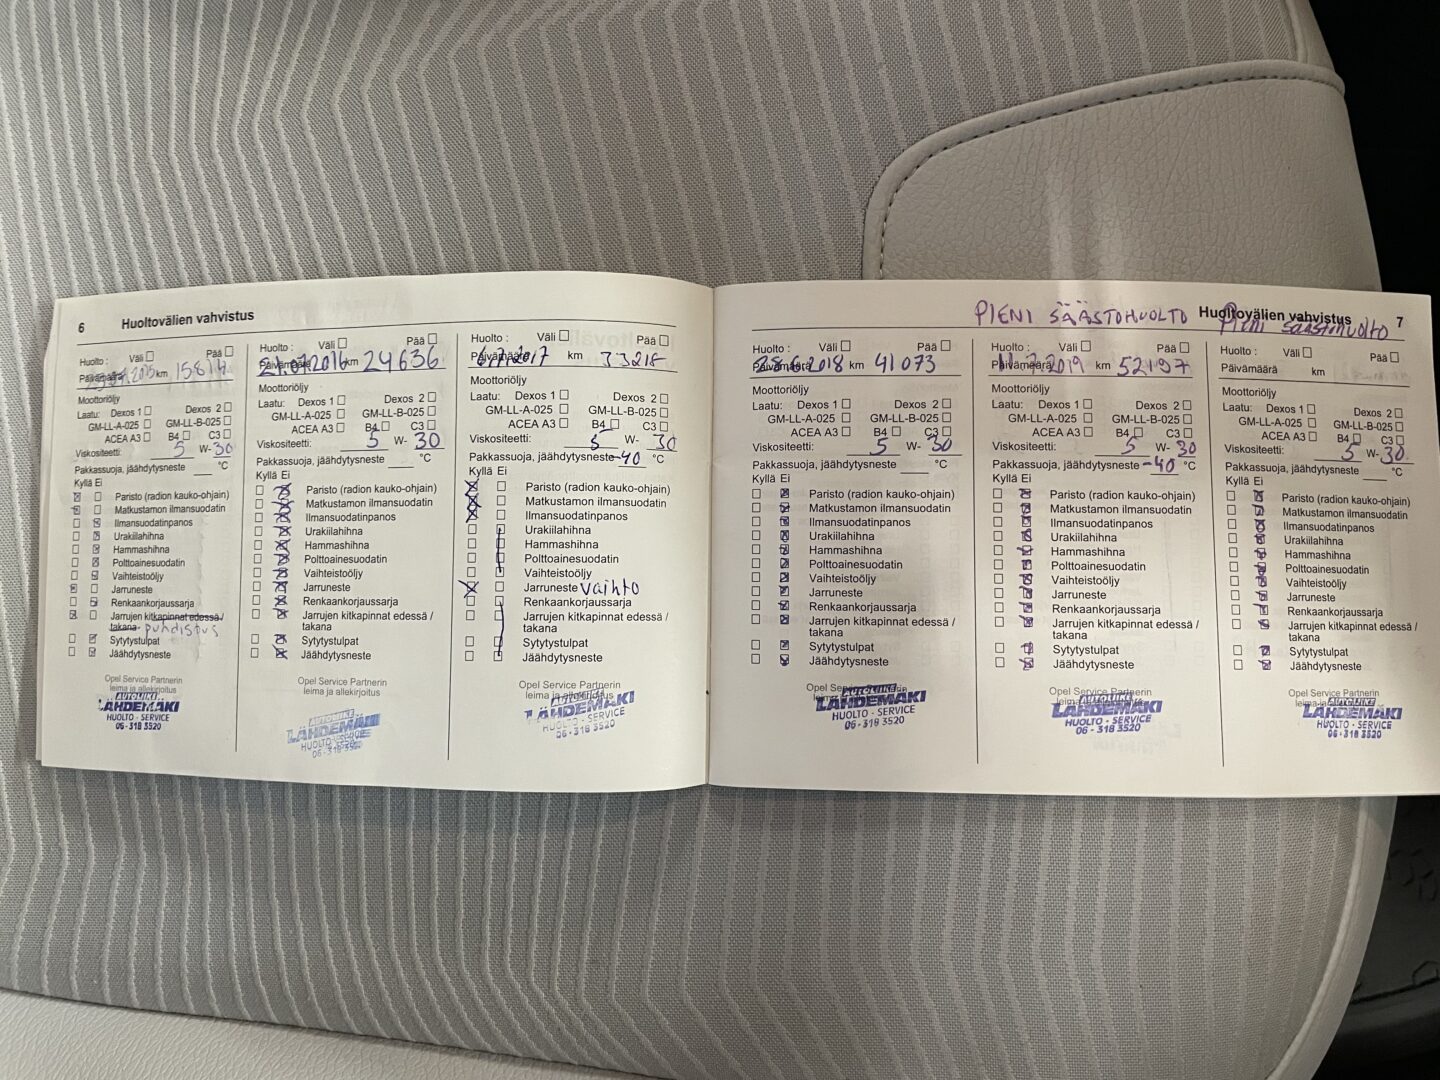 6 Huoltovälien vahvistus
Huolto : Väli Pää
Päivämäärä km 15814
Moottoriöljy
Laatu: Dexos 1 Dexos 2
GM-LL-A-025 GM-LL-B-025
ACEA A3 B4 C3
Viskositeetti: 5 W- 30
Pakkassuoja, jäähdytysneste °C
Kyllä Ei
Paristo (radion kauko-ohjain)
Matkustamon ilmansuodatin
Ilmansuodatinpanos
Urakiilahihna
Hammashihna
Polttoainesuodatin
Vaihteistoöljy
Jarruneste
Renkaankorjaussarja
Jarrujen kitkapinnat edessä /
takana puhdistus
Sytytystulpat
Jäähdytysneste
Opel Service Partnerin
leima ja allekirjoitus
AUTOLIIKE
LÄHDEMÄKI
HUOLTO - SERVICE
06 - 318 3520
Huolto : Väli Pää
Päivämäärä 21.07.2016 km 24636
Moottoriöljy
Laatu: Dexos 1 Dexos 2
GM-LL-A-025 GM-LL-B-025
ACEA A3 B4 C3
Viskositeetti: 5 W- 30
Pakkassuoja, jäähdytysneste °C
Kyllä Ei
Paristo (radion kauko-ohjain)
Matkustamon ilmansuodatin
Ilmansuodatinpanos
Urakiilahihna
Hammashihna
Polttoainesuodatin
Vaihteistoöljy
Jarruneste
Renkaankorjaussarja
Jarrujen kitkapinnat edessä /
takana
Sytytystulpat
Jäähdytysneste
Opel Service Partnerin
leima ja allekirjoitus
AUTOLIIKE
LÄHDEMÄKI
HUOLTO - SERVICE
06 - 318 3520
Huolto : Väli Pää
Päivämäärä km 33218
Moottoriöljy
Laatu: Dexos 1 Dexos 2
GM-LL-A-025 GM-LL-B-025
ACEA A3 B4 C3
Viskositeetti: 5 W- 30
Pakkassuoja, jäähdytysneste -40 °C
Kyllä Ei
Paristo (radion kauko-ohjain)
Matkustamon ilmansuodatin
Ilmansuodatinpanos
Urakiilahihna
Hammashihna
Polttoainesuodatin
Vaihteistoöljy
Jarruneste vaihto
Renkaankorjaussarja
Jarrujen kitkapinnat edessä /
takana
Sytytystulpat
Jäähdytysneste
Opel Service Partnerin
leima ja allekirjoitus
AUTOLIIKE
LÄHDEMÄKI
HUOLTO - SERVICE
06 - 318 3520
PIENI SÄÄSTÖHUOLTO Huoltovälien vahvistus 7
Pieni säästöhuolto
Huolto : Väli Pää
Päivämäärä 25.6.2018 km 41073
Moottoriöljy
Laatu: Dexos 1 Dexos 2
GM-LL-A-025 GM-LL-B-025
ACEA A3 B4 C3
Viskositeetti: 5 W- 30
Pakkassuoja, jäähdytysneste °C
Kyllä Ei
Paristo (radion kauko-ohjain)
Matkustamon ilmansuodatin
Ilmansuodatinpanos
Urakiilahihna
Hammashihna
Polttoainesuodatin
Vaihteistoöljy
Jarruneste
Renkaankorjaussarja
Jarrujen kitkapinnat edessä /
takana
Sytytystulpat
Jäähdytysneste
Opel Service Partnerin
AUTOLIIKE
LÄHDEMÄKI
HUOLTO - SERVICE
06 - 318 3520
Huolto : Väli Pää
Päivämäärä km 52197
Moottoriöljy
Laatu: Dexos 1 Dexos 2
GM-LL-A-025 GM-LL-B-025
ACEA A3 B4 C3
Viskositeetti: 5 W- 30
Pakkassuoja, jäähdytysneste -40 °C
Kyllä Ei
Paristo (radion kauko-ohjain)
Matkustamon ilmansuodatin
Ilmansuodatinpanos
Urakiilahihna
Hammashihna
Polttoainesuodatin
Vaihteistoöljy
Jarruneste
Renkaankorjaussarja
Jarrujen kitkapinnat edessä /
takana
Sytytystulpat
Jäähdytysneste
Opel Service Partnerin
AUTOLIIKE
LÄHDEMÄKI
HUOLTO - SERVICE
06 - 318 3520
Huolto : Väli Pää
Päivämäärä km
Moottoriöljy
Laatu: Dexos 1 Dexos 2
GM-LL-A-025 GM-LL-B-025
ACEA A3 B4 C3
Viskositeetti: 5 W- 30
Pakkassuoja, jäähdytysneste °C
Kyllä Ei
Paristo (radion kauko-ohjain)
Matkustamon ilmansuodatin
Ilmansuodatinpanos
Urakiilahihna
Hammashihna
Polttoainesuodatin
Vaihteistoöljy
Jarruneste
Renkaankorjaussarja
Jarrujen kitkapinnat edessä /
takana
Sytytystulpat
Jäähdytysneste
Opel Service Partnerin
AUTOLIIKE
LÄHDEMÄKI
HUOLTO - SERVICE
06 - 318 3520